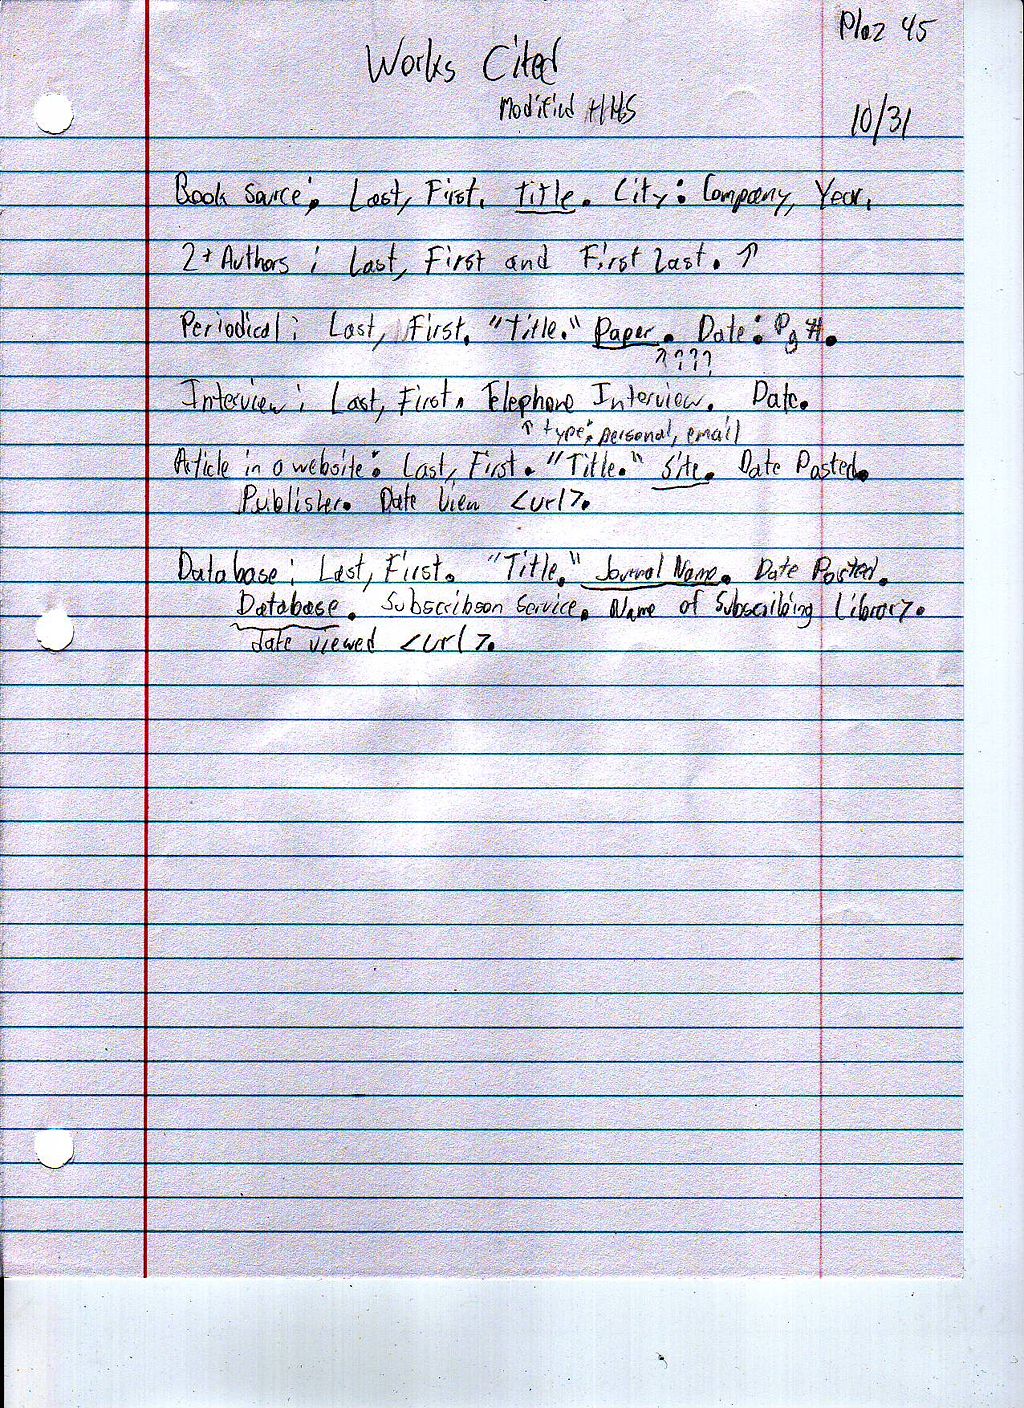 45
Works Cited
Modified HHS
10/31
Book Source: Last, First. Title. City: Company, Year.
2+ Authors: Last, First and First Last. ↑
Periodical: Last, First. "Title." Paper. Date: Pg #.
↑???
Interview: Last, First. Telephone Interview. Date.
↑ type: personal, email
Article in a website: Last, First. "Title." Site. Date Posted.
Publisher. Date View <url>.
Database: Last, First. "Title." Journal Name. Date Posted.
Database. Service. Name of Subscribing Library.
date viewed <url>.